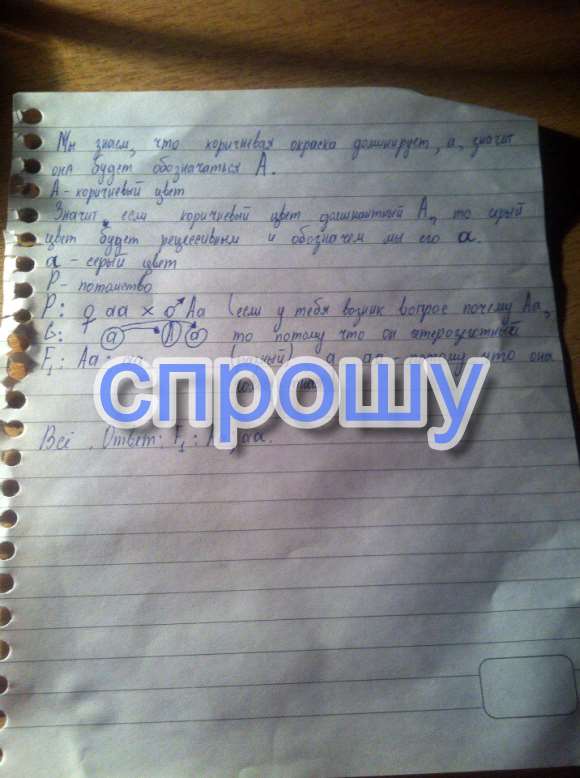 Мы знаем, что коричневая окраска доминирует, а, значит
она будет обозначаться А.
А - коричневый цвет
Значит, если коричневый цвет доминантный А, то серый
цвет будет рецессивным и обозначем мы его а.
а - серый цвет
Р - потомство
Р: ♀ аа × ♂ Аа (если у тебя возник вопрос почему Аа,
G: а А а то потому что он гетерозиготный
F₁: Аа; потому что она
спрошу
Всё. Ответ: F₁: аа.